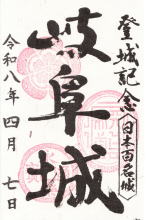 登城記念
日本百名城
岐阜城
令和八年四月七日